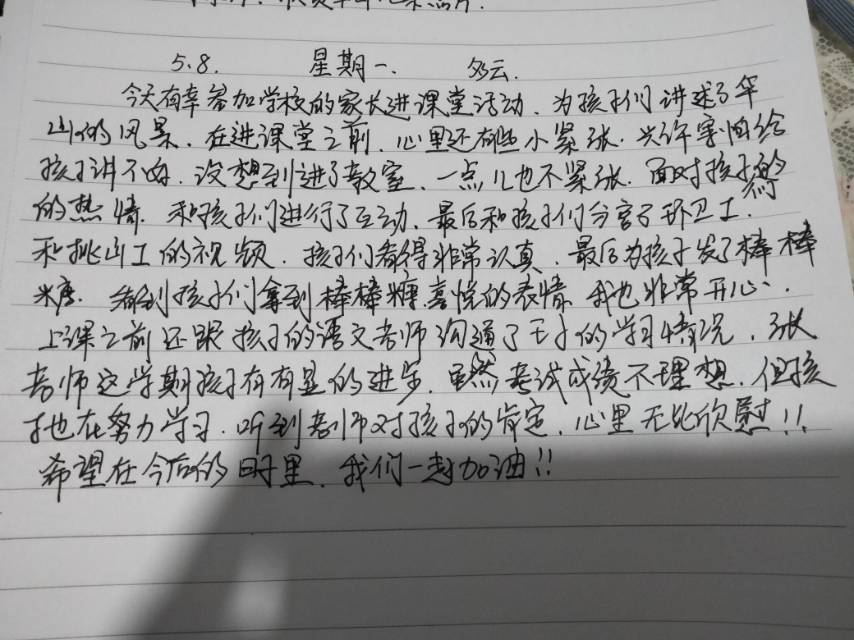 5.8. 星期一. 多云.
今天有幸参加学校的家长进课堂活动、为孩子们讲述了华
山的风景、在进课堂之前、心里还有些小紧张、兴许害怕给
孩子讲不好、没想到进了教室、一点儿也不紧张、面对孩子的
的热情、和孩子们进行了互动、最后和孩子们分享了环卫工、
和挑山工的视频、孩子们看得非常认真、最后为孩子发了棒棒
糖、看到孩子们拿到棒棒糖喜悦的表情、我也非常开心、
上课之前还跟孩子的语文老师沟通了王子的学习情况、张
老师这学期孩子有有显的进步、虽然考试成绩不理想、但孩
子也在努力学习、听到老师对孩子的肯定、心里无比欣慰!!
希望在今后的时里、我们一起加油!!